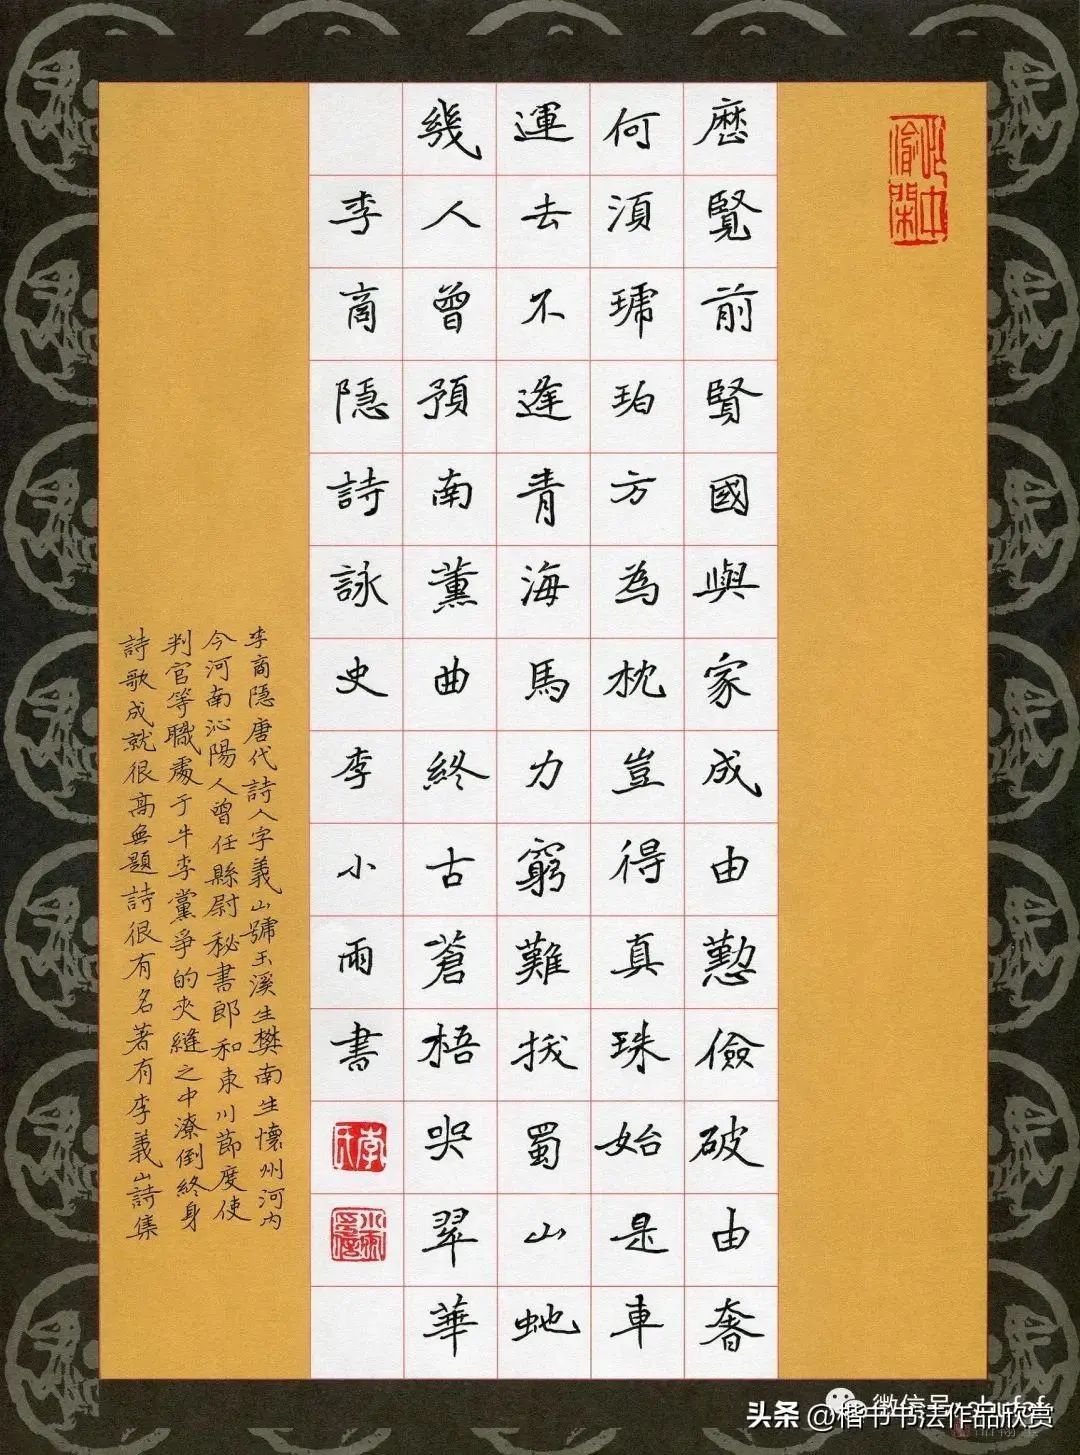 忙中偷閑
歷覽前賢國與家成由懃儉破由奢
何須琥珀方為枕豈得真珠始是車
運去不逢青海馬力窮難拔蜀山虵
幾人曾預南薰曲終古蒼梧哭翠華
李商隱詩詠史李小雨書
李氏
李商隱唐代詩人字義山號玉溪生樊南生懷州河内
今河南沁陽人曾任縣尉秘書郎和東川節度使
判官等職處于牛李黨爭的夾縫之中潦倒終身
詩歌成就很高無題詩很有名著有李義山詩集
头条@楷书书法作品欣赏